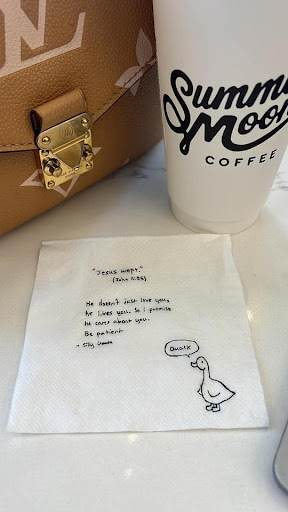 Summ
Moon
COFFEE
"Jesus wept."
(John 11:35)
He doesn't just love you,
he likes you. So i promise
he cares about you.
Be patient
- Silly Goose
Quack